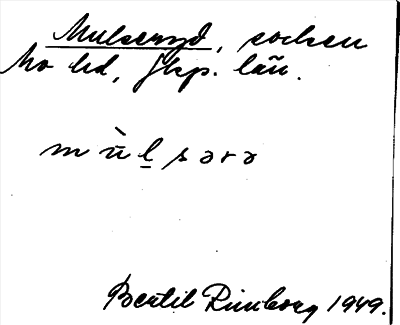 Mulseryd, socken
Mo hd, Jkp. län.
m ù̄ l̲ s ə r ə
Bertil Rimborg 1949.